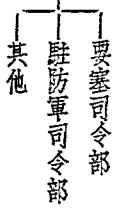 要塞司令部
駐防軍司令部
其他